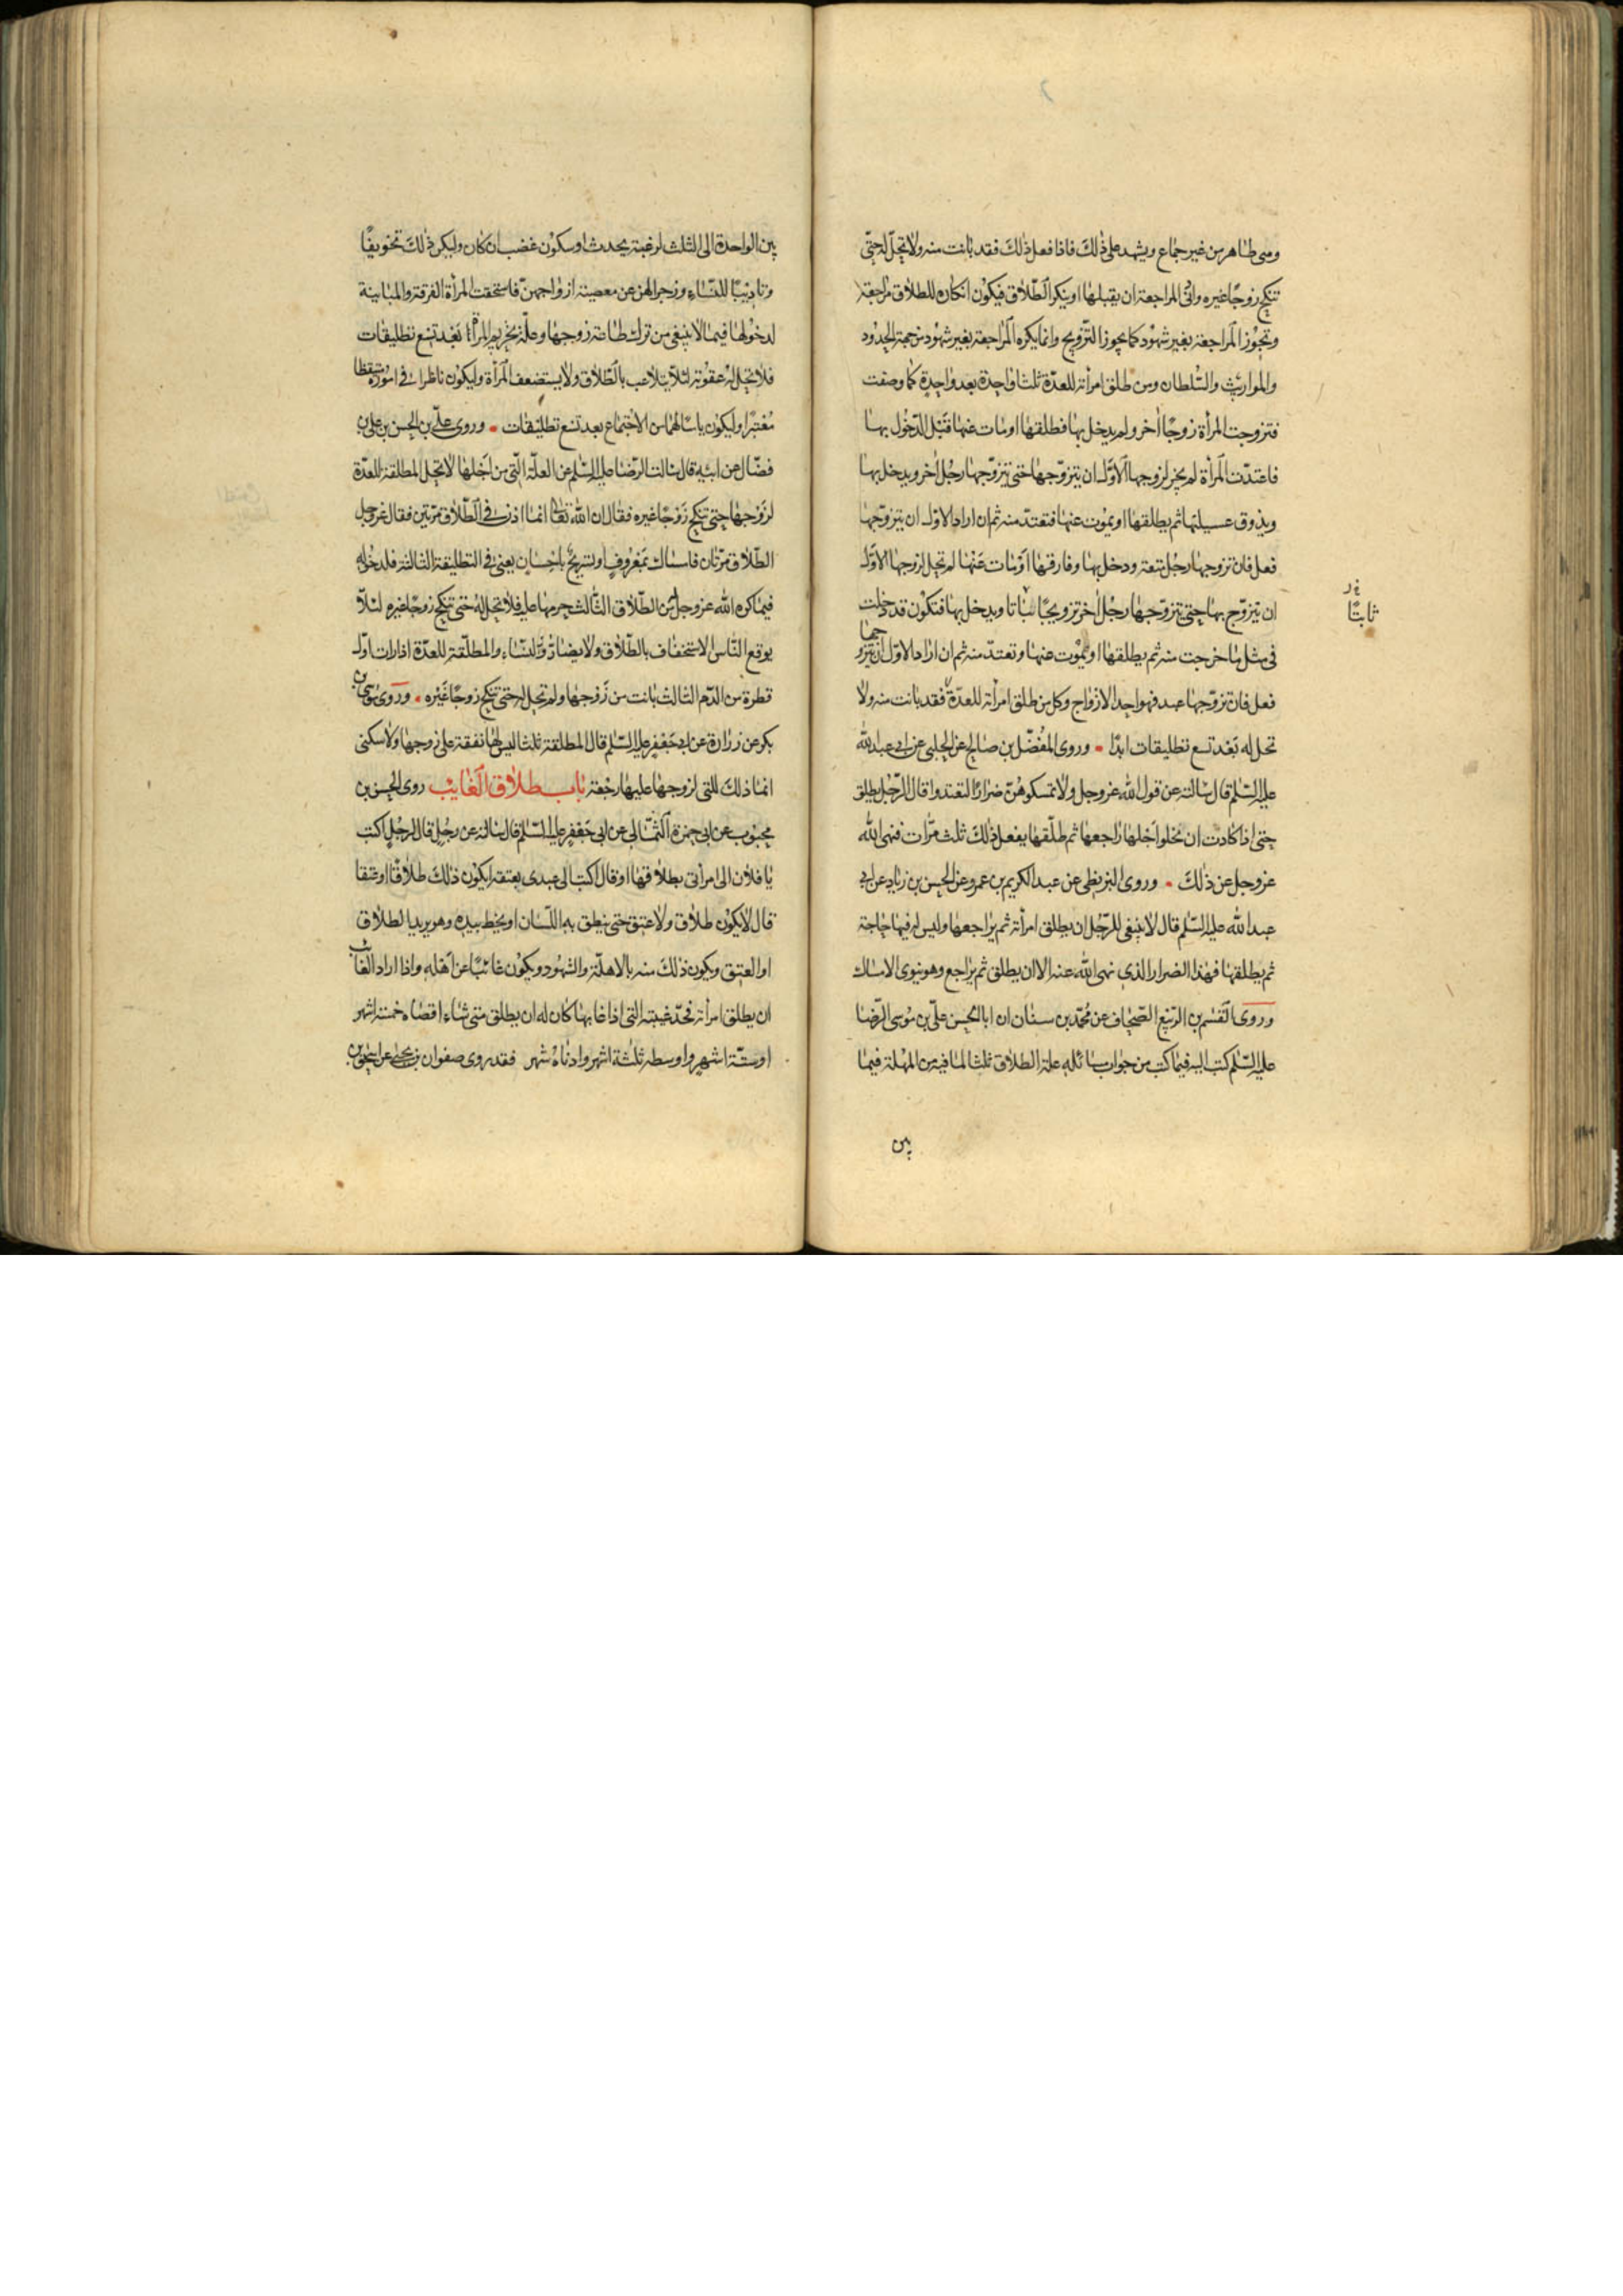 ومى طاهر من غير جماع ويشهد على ذلك فاذا فعل ذلك فقد بانت منه ولا تحل له حتى
تنكح زوجا غيره وانى المراجعة ان يقبلها او ينكر الطلاق فيكون انكاره للطلاق مراجعة
وتجوز المراجعة بغير شهود كما يجوز التزويج وانما يكره المراجعة بغير شهود من جهة الحدود
والمواريث والسلطان ومن طلق امرأته للعدة ثلثا واحدة بعد واحدة كما وصفت
فتزوجت المرأة زوجا اخر ولم يدخل بها فطلقها او مات عنها قبل الدخول بها
فاعتدت المرأة لم يجز لزوجها الاول ان يتزوجها حتى يتزوجها رجل اخر ويدخل بها
ويذوق عسيلتها ثم يطلقها او يموت عنها فتعتد منه ثم ان اراد الاول ان يتزوجها
فعل فان تزوجها رجل متعة ودخل بها وفارقها او مات عنها لم تحل لزوجها الاول
ان يتزوج بها حتى يتزوجها رجل اخر تزويجا بتاتا ويدخل بها فتكون قد دخلت
فى مثل ما خرجت منه ثم يطلقها او يموت عنها وتعتد منه ثم ان اراد الاول ان يتزوجها
فعل فان تزوجها عبد فهو احد الازواج وكل من طلق امرأته للعدة فقد بانت منه ولا
تحل له بعد تسع تطليقات ابدا وروى المفضل بن صالح عن الحلبى عن ابى عبد الله
عليه السلم قال سالته عن قول الله عز وجل ولا تمسكوهن ضرارا لتعتدوا قال الرجل يطلق
حتى اذا كادت ان يخلوا اجلها راجعها ثم طلقها يفعل ذلك ثلث مرات فنهى الله
عز وجل عن ذلك وروى البزنطى عن عبد الكريم بن عمرو عن الحسن بن زياد عن ابى
عبد الله عليه السلم قال لا ينبغى للرجل ان يطلق امرأته ثم يراجعها وليس له فيها حاجة
ثم يطلقها فهذا الضرار الذى نهى الله عنه الا ان يطلق ثم يراجع وهو ينوى الامساك
وروى القسم بن الربيع الصحاف عن محمد بن سنان ان ابا الحسن على بن موسى الرضا
عليه السلم كتب اليه فيما كتب من جواب مسائله علة الطلاق ثلثا لما فيه من المهلة فيما
بين
ثابتا
بين الواحدة الى الثلث لرغبة يحدث او سكون غضب ان كان وليكن ذلك تخويفا
وتاديبا للنساء وزجرا لهن عن معصية ازواجهن فاستحقت المرأة الفرقة والمباينة
لدخولها فيما لا ينبغى من ترك طاعة زوجها وعلة تحريم المرأة بعد تسع تطليقات
فلا تحل له عقوبة لئلا يتلاعب بالطلاق ولا يستضعف المرأة وليكون ناظرا فى اموره متيقظا
معتبرا وليكون ياسا لهما من الاجتماع بعد تسع تطليقات وروى على بن الحسن بن على بن
فضال عن ابيه قال سالت الرضا عليه السلم عن العلة التى من اجلها لا تحل المطلقة للعدة
لزوجها حتى تنكح زوجا غيره فقال ان الله تعالى انما اذن فى الطلاق مرتين فقال عز وجل
الطلاق مرتان فامساك بمعروف او تسريح باحسان يعنى فى التطليقة الثالثة فلدخوله
فيما كره الله عز وجل من الطلاق الثالث حرمها عليه فلا تحل له حتى تنكح زوجا غيره لئلا
يوقع الناس الاستخفاف بالطلاق ولا يضار النساء والمطلقة للعدة اذا رات اول
قطرة من الدم الثالث بانت من زوجها ولم تحل له حتى تنكح زوجا غيره وروى موسى بن
بكر عن زرارة عن ابى جعفر عليه السلم قال المطلقة ثلثا ليس لها نفقة على زوجها ولا سكنى
انما ذلك للتى لزوجها عليها رجعة باب طلاق الغايب روى الحسن بن
محبوب عن ابى حمزة الثمالى عن ابى جعفر عليه السلم قال سالته عن رجل قال لرجل اكتب
يا فلان الى امرأتى بطلاقها او قال اكتب الى عبدى بعتقه ايكون ذلك طلاقا او عتقا
قال لا يكون طلاق ولا عتق حتى ينطق به اللسان او يخط بيده وهو يريد الطلاق
او العتق ويكون ذلك منه بالاهلة والشهود ويكون غائبا عن اهله واذا اراد الغائب
ان يطلق امرأته فحد غيبته التى اذا غابها كان له ان يطلق متى شاء اقصاه خمسة اشهر
او ستة اشهر واوسطه ثلثة اشهر وادناه شهر فقد روى صفوان بن يحيى عن اسحق بن